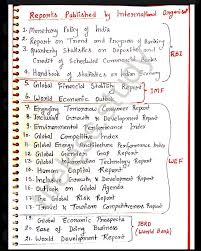 Reports Published by International Organisat
1. Monetary Policy of India
2. Report on Trend and Progress of Banking
3. Quarterly Statistics on Deposites and
Credit of Scheduled Commercial Banks
4. Handbook of Statistics on Indian Economy
RBI
5. Global Financial Stability Report
6. World Economic Outlook
IMF
7. Engaging Tomorrow Consumer Report
Inclusive Growth & Development Report
Environmental Performance Index
Global Competitive Index
Global Gender Gap Report
Global Information Technology Report
Human Capital Report
Inclusive Growth & Development Report
Outlook on Global Agenda
The Global Risk Report
Travel & Tourism Competitiveness Report
WEF
19. Global Economic Prospects
20. Ease of Doing Business
21. World Development Report
IBRD
(World Bank)